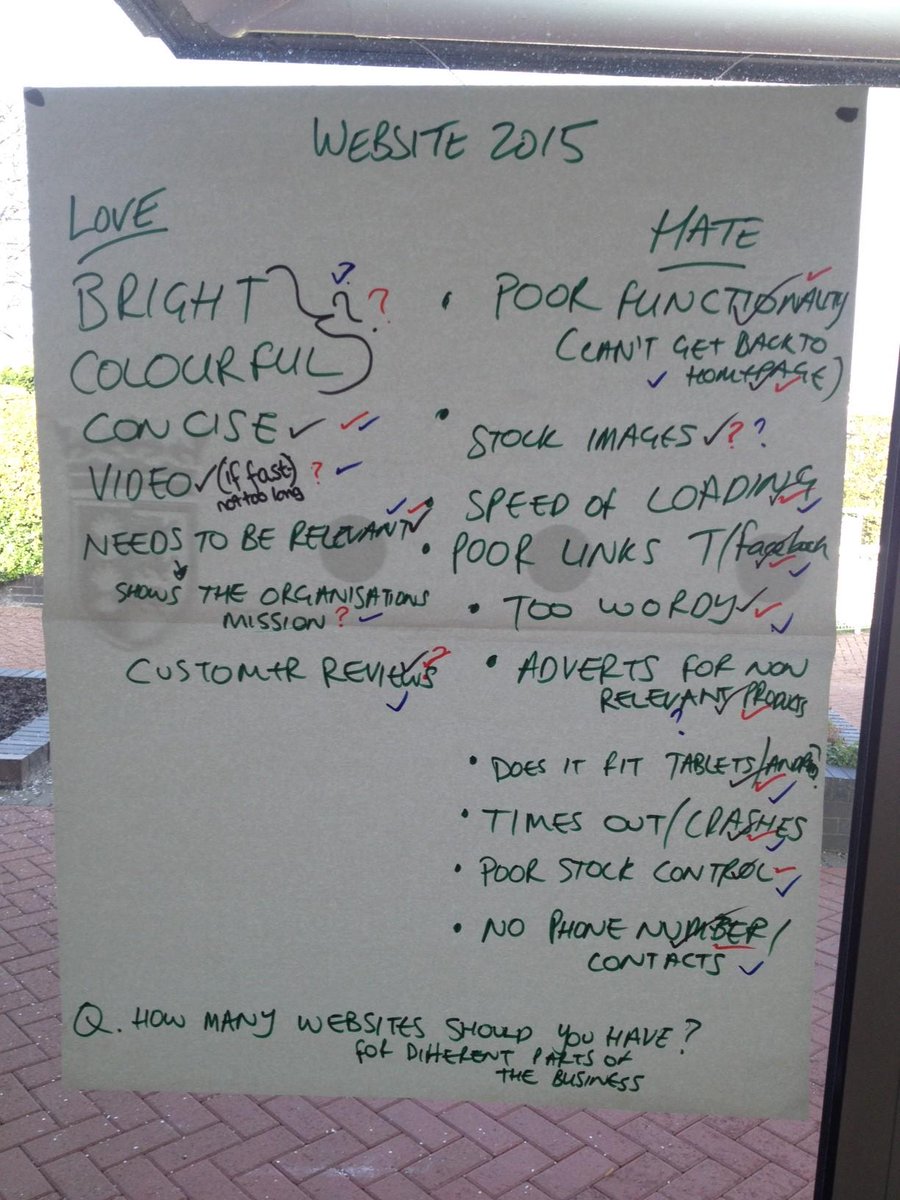 WEBSITE 2015
LOVE
BRIGHT ?
COLOURFUL
CONCISE ✓ ✓✓
VIDEO ✓ (if fast) ? ✓
not too long
NEEDS TO BE RELEVANT
SHOWS THE ORGANISATIONS
MISSION ? ✓
CUSTOMER REVIEWS
HATE
• POOR FUNCTIONALTY
(CAN'T GET BACK TO
HOMEPAGE)
• STOCK IMAGES ✓ ? ?
• SPEED OF LOADING
• POOR LINKS T/facebook
• TOO WORDY ✓✓
• ADVERTS FOR NON
RELEVANT PRODUCTS
?
• DOES IT FIT TABLETS/
• TIMES OUT/CRASHES
• POOR STOCK CONTROL
• NO PHONE NUMBER/
CONTACTS ✓
Q. HOW MANY WEBSITES SHOULD YOU HAVE?
FOR DIFFERENT PARTS OF
THE BUSINESS